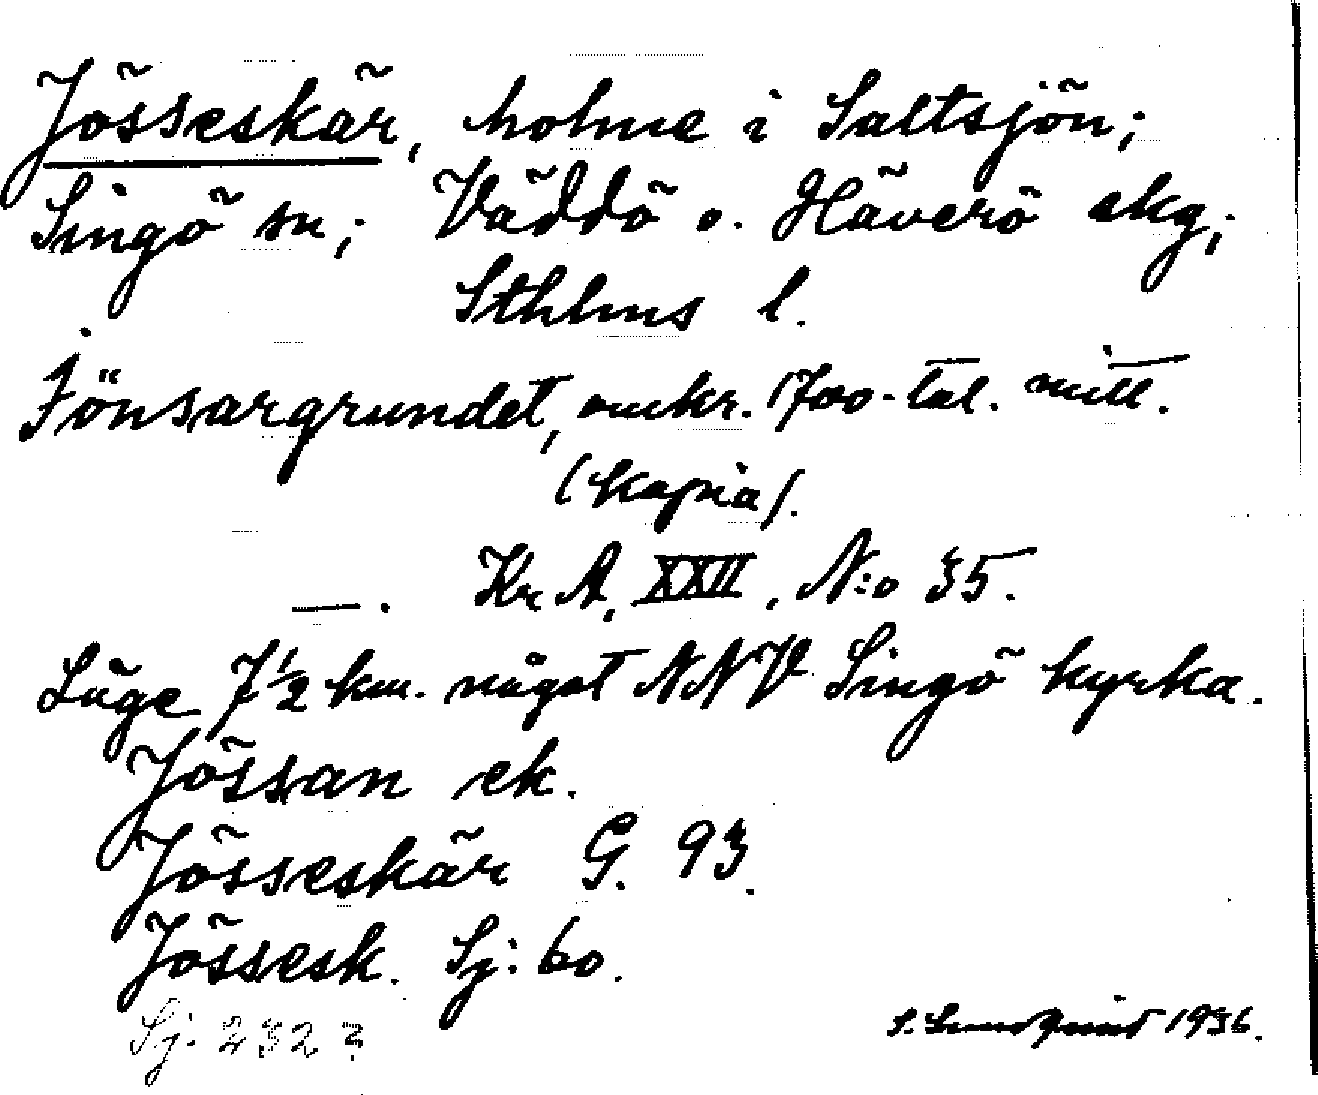 Jösseskär, holme i Saltsjön;
Singö sn; Väddö o. Häverö skg;
Sthlms l.
Jönsargrundet, omkr. 1700-tal. mitt.
(kopia).
—. Kr. A, XXII, N:o 35.
Läge 7 1/2 km. något NNV Singö kyrka.
Jössan ek.
Jösseskär G. 93.
Jössesk. Sj: 60.
Sj: 232?
S. Lundquist 1936.